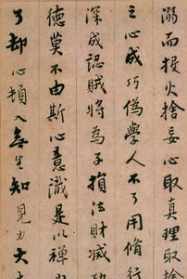 溺而投火捨妄心取真理取捨
之心成巧偽學人不了用脩行
深成認賊將為子損法財減功
德莫不由斯心意識是以禪
了却心頓入無生知見力大丈